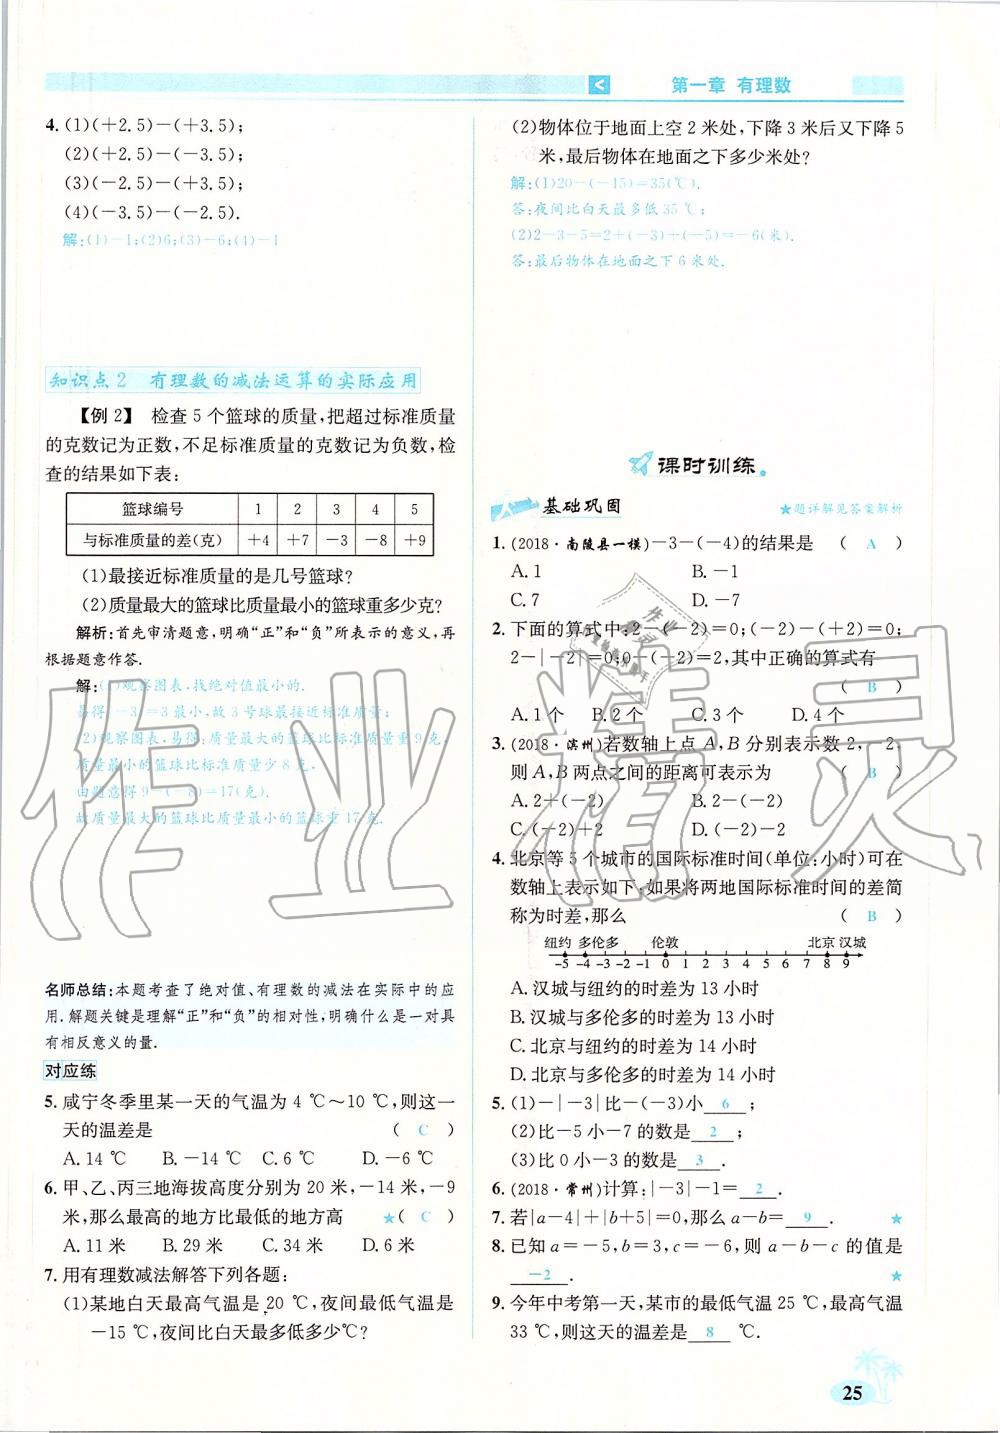 第一章 有理数
4. (1)(+2.5)-(+3.5);
(2)(+2.5)-(-3.5);
(3)(-2.5)-(+3.5);
(4)(-3.5)-(-2.5).
解:(1)-1;(2)6;(3)-6;(4)-1
知识点2 有理数的减法运算的实际应用
【例2】 检查5个篮球的质量,把超过标准质量
的克数记为正数,不足标准质量的克数记为负数,检
查的结果如下表:
篮球编号 1 2 3 4 5
与标准质量的差(克) +4 +7 -3 -8 +9
(1)最接近标准质量的是几号篮球?
(2)质量最大的篮球比质量最小的篮球重多少克?
解析:首先审清题意,明确“正”和“负”所表示的意义,再
根据题意作答.
解:(1)观察图表,找绝对值最小的.
易得|-3|=3最小,故3号球最接近标准质量;
(2)观察图表,易得:质量最大的篮球比标准质量重9克,
质量最小的篮球比标准质量少8克.
由题意得9-(-8)=17(克).
故质量最大的篮球比质量最小的篮球重17克.
名师总结:本题考查了绝对值、有理数的减法在实际中的应
用.解题关键是理解“正”和“负”的相对性,明确什么是一对具
有相反意义的量.
对应练
5. 咸宁冬季里某一天的气温为4 ℃~10 ℃,则这一
天的温差是 ( C )
A.14 ℃ B.-14 ℃ C.6 ℃ D.-6 ℃
6. 甲、乙、丙三地海拔高度分别为20米,-14米,-9
米,那么最高的地方比最低的地方高 ★( C )
A.11米 B.29米 C.34米 D.6米
7. 用有理数减法解答下列各题:
(1)某地白天最高气温是20 ℃,夜间最低气温是
-15 ℃,夜间比白天最多低多少℃?
(2)物体位于地面上空2米处,下降3米后又下降5
米,最后物体在地面之下多少米处?
解:(1)20-(-15)=35(℃).
答:夜间比白天最多低35 ℃;
(2)2-3-5=2+(-3)+(-5)=-6(米).
答:最后物体在地面之下6米处.
课时训练
基础巩固 ★题详解见答案解析
1. (2018·南陵县一模)-3-(-4)的结果是 ( A )
A.1 B.-1
C.7 D.-7
2. 下面的算式中:2-(-2)=0;(-2)-(+2)=0;
2-|-2|=0;0-(-2)=2,其中正确的算式有
( B )
A.1个 B.2个 C.3个 D.4个
3. (2018·滨州)若数轴上点A,B分别表示数2, 2,
则A,B两点之间的距离可表示为 ( B )
A.2+(-2) B.2-(-2)
C.(-2)+2 D.(-2)-2
4. 北京等5个城市的国际标准时间(单位:小时)可在
数轴上表示如下:如果将两地国际标准时间的差简
称为时差,那么 ( B )
纽约 多伦多 伦敦 北京 汉城
-5 -4 -3 -2 -1 0 1 2 3 4 5 6 7 8 9
A.汉城与纽约的时差为13小时
B.汉城与多伦多的时差为13小时
C.北京与纽约的时差为14小时
D.北京与多伦多的时差为14小时
5. (1)-|-3|比-(-3)小 6 ;
(2)比-5小-7的数是 2 ;
(3)比0小-3的数是 3 .
6. (2018·常州)计算:|-3|-1= 2 .
7. 若|a-4|+|b+5|=0,那么a-b= 9 . ★
8. 已知a=-5,b=3,c=-6,则a-b-c的值是
-2 . ★
9. 今年中考第一天,某市的最低气温25 ℃,最高气温
33 ℃,则这天的温差是 8 ℃.
25
作业精灵